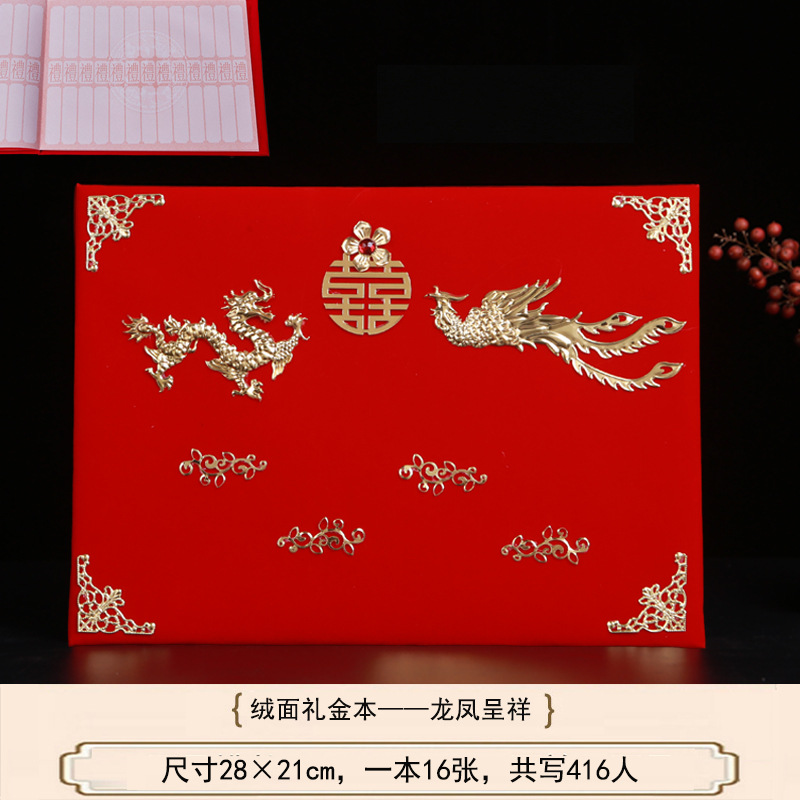 禮 禮 禮 禮 禮 禮 禮 禮 禮 禮 禮 禮 禮
囍
{绒面礼金本——龙凤呈祥}
尺寸28×21cm，一本16张，共写416人